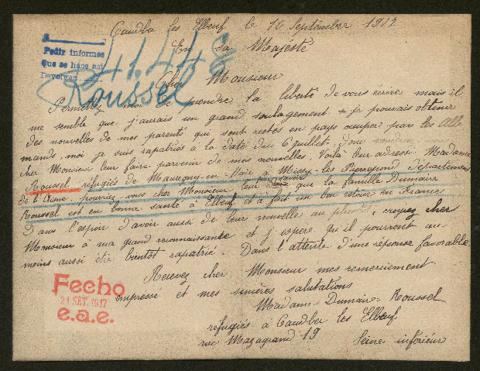 Caudbec les Elbeuf le 16 Septembre 1917
En sa Majesté
Pedir informes
que se hace así
41.448
Roussel
Cher Monsieur
Permettez de prendre la liberté de vous écrire mais il
me semble que j'aurais un grand soulagement si je pouvais obtenir
des nouvelles de mes parents qui sont restés en pays occuper par les Alle
mands, moi je suis rapatriée à la date du 6 juillet.
cher Monsieur leur faire parvenir de mes nouvelles. Voilà leur adresse. Madame
Roussel réfugiés de Mauregny-en-Haie Missy les Pierrepont département
de l'Aisne, pouvez vous cher Monsieur leur dire que la famille Dumaire
Roussel est en bonne santé à Elbeuf et a fait un bon retour en France
Dans l'espoir d'avoir aussi de leur nouvelles au plutôt, croyez cher
Monsieur à ma grand reconnaissance et j'espère qu'il pourront au
moins aussi être bientôt rapatrié. Dans l'attente d'une réponse favorable
Recevez cher Monsieur mes remerciement
empressé et mes sincères salutations
Madame Dumaire Roussel
réfugiés à Caudbec les Elbeuf
rue Mazagrand 19 Seine inférieur
Fecho
21 SET. 1917
e.a.e.